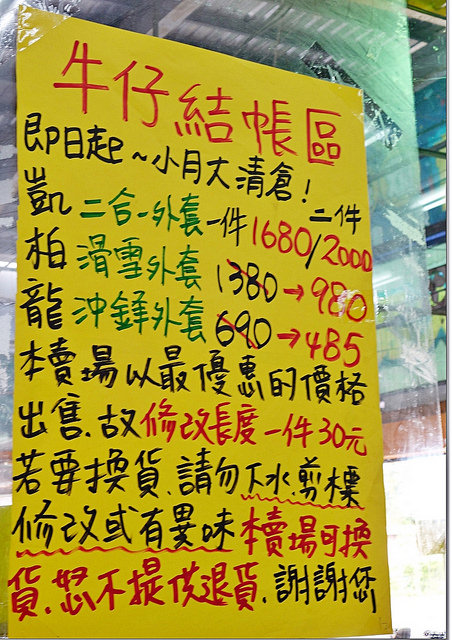 牛仔結帳區
即日起~小月大清倉!
凱 二合一外套 一件1680/二件2000
柏 滑雪外套 1380→980
龍 沖鋒外套 690→485
本賣場以最優惠的價格
出售.故修改長度一件30元
若要換貨.請勿下水.剪標
修改或有異味本賣場可換
貨.恕不提供退貨.謝謝您